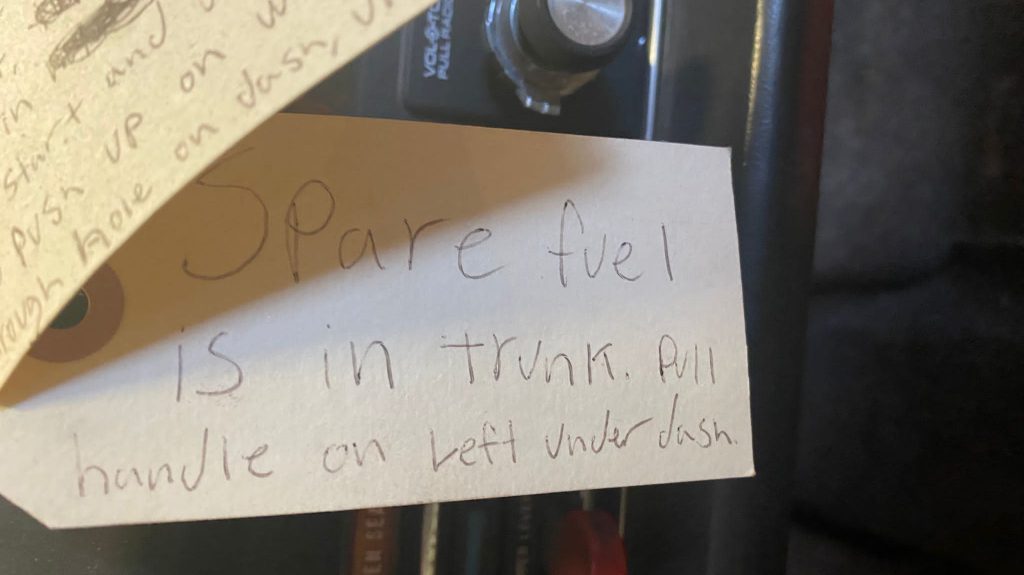 in
start and
push up on
rough hole on dash, up
VOL
Spare fuel
is in trunk. Pull
handle on Left under dash.